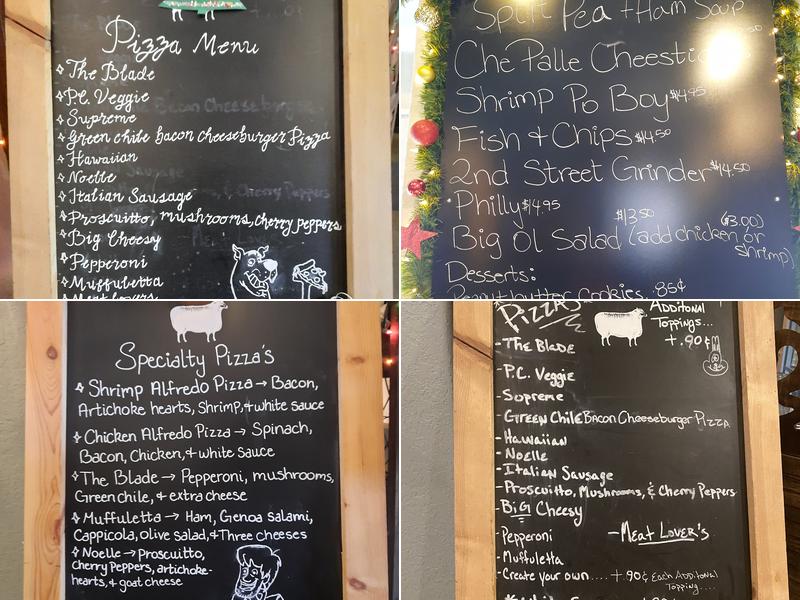 Pizza Menu
The Blade
P.C. Veggie
Supreme
Green chile bacon cheeseburger Pizza
Hawaiian
Noelle
Italian Sausage
Proscuitto, mushrooms, cherry peppers
Big Cheesy
Pepperoni
Muffuletta
Meat lovers
Split Pea + Ham Soup
Che Palle Cheestic
Shrimp Po Boy $14.95
Fish & Chips $14.50
2nd Street Grinder $14.50
Philly $14.95
$13.50 ($3.00)
Big Ol Salad (add chicken or
shrimp)
Desserts:
Peanut butter Cookies .85¢
Specialty Pizza's
Shrimp Alfredo Pizza → Bacon,
Artichoke hearts, Shrimp, & white sauce
Chicken Alfredo Pizza → Spinach,
Bacon, Chicken, & white Sauce
The Blade → Pepperoni, mushrooms,
Green chile, & extra cheese
Muffuletta → Ham, Genoa salami,
Cappicola, olive salad, & Three cheeses
Noelle → Proscuitto,
cherry Peppers, artichoke-
hearts, & goat cheese
Pizzas
Additonal
Toppings...
+.90¢
- The Blade
- P.C. Veggie
- Supreme
- Green Chile Bacon Cheeseburger Pizza
- Hawaiian
- Noelle
- Italian Sausage
- Proscuitto, Mushrooms, & Cherry Peppers
- BiG Cheesy
Pepperoni - Meat Lover's
- Muffuletta
- Create your own.... +.90¢ Each Additonal
Topping....